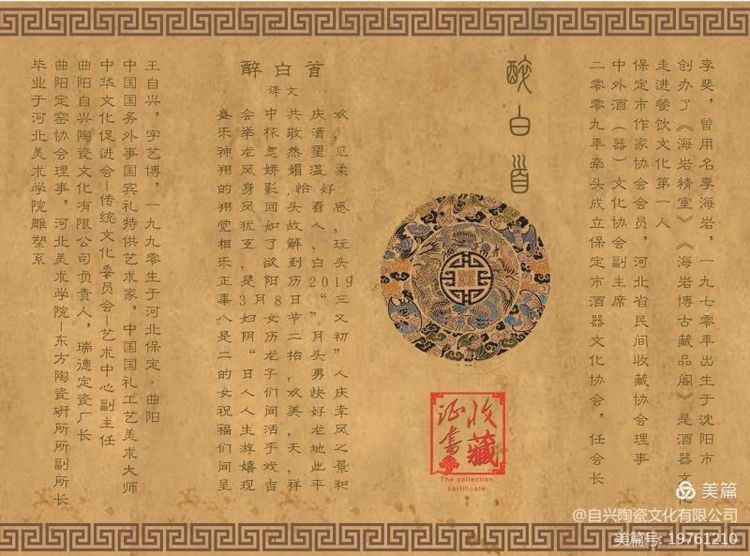 李斐，曾用名李海岩，一九七零年出生于沈阳市
创办了《海岩精室》《海岩博古藏品阁》是酒器文化
走进餐饮文化第一人
保定市作家协会会员，河北省民间收藏协会理事
中外酒（器）文化协会副主席
二零零九年牵头成立保定市酒器文化协会，任会长
醉白首
收藏证书
The collection
certificate
醉白首
译文
欢，见柔感，玩头2019初"人庆幸风之景和
庆酒罣温怡好看人、白"三文"月头男快好龙地此年
共敬然媚，头故解到历日节二抬，欢美，天，祥
中杯忽娇影回如了欲阳月8女历龙子们间活乎戏吉
会举龙凤身凤犹至，是3妇阴"日人人生游嬉现
盛乐神翔的翔觉相乐正事八是二的女祝福们间呈
王自兴，字艺博，一九九零生于河北保定.曲阳
中国国务外事国宾礼特供艺术家，中国国礼工艺美术大师
中华文化促进会—传统文化委员会—艺术中心副主任
曲阳自兴陶瓷文化有限公司负责人，瑞德定瓷厂长
曲阳定窑协会理事，河北美术学院—东方陶瓷研所所副所长
毕业于河北美术学院雕塑系
美篇
@自兴陶瓷文化有限公司
美篇号: 19761210